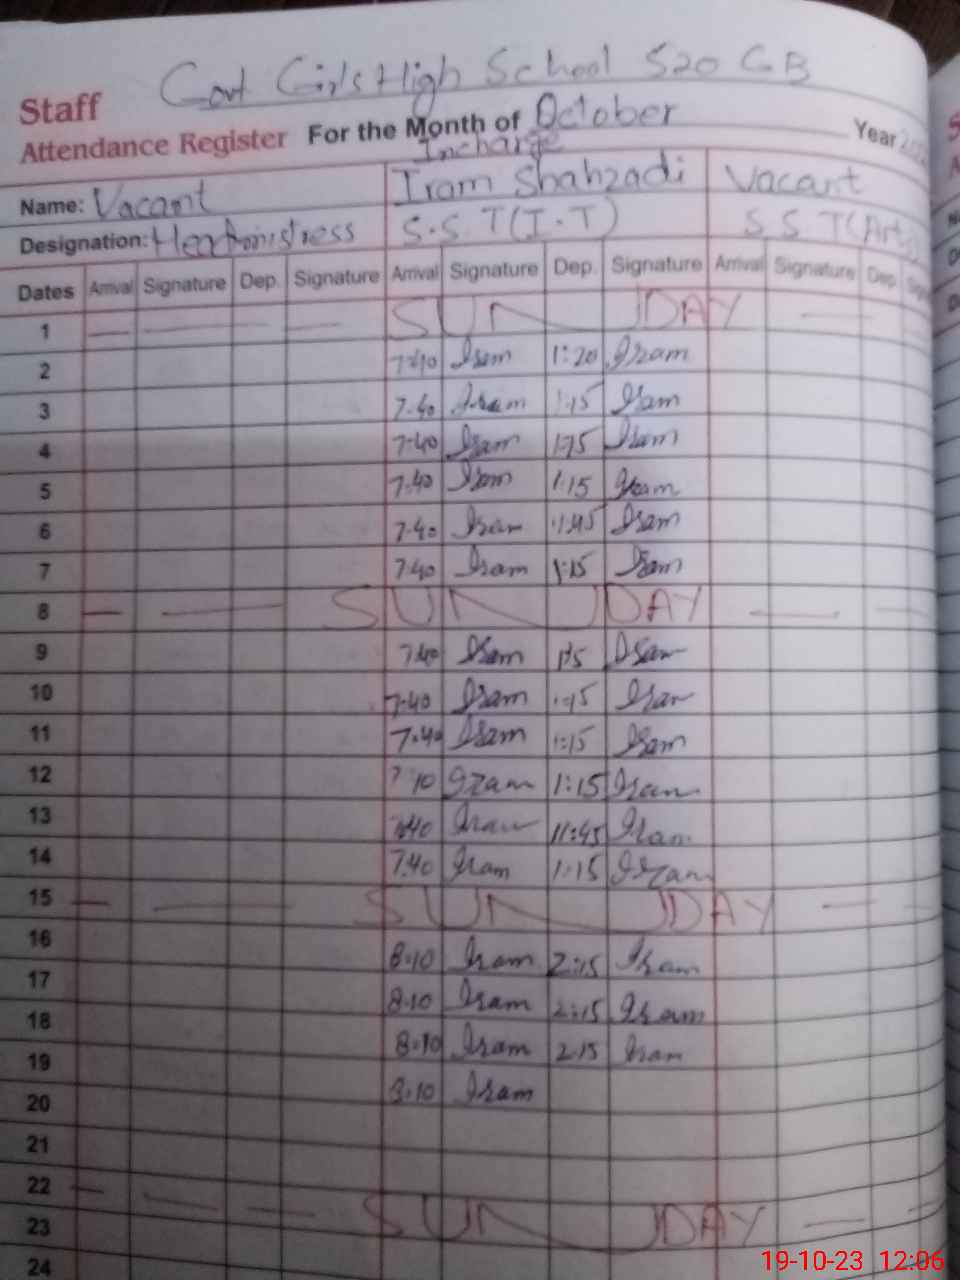 Govt Girls High School 520 GB
Staff
Attendance Register For the Month of October Year
Incharge
Name: Vacant Iram Shahzadi Vacant
Designation: Headmistress S.S.T(I.T) S S T(Arts)
Dates Arrival Signature Dep. Signature Arrival Signature Dep. Signature Arrival Signature Dep.
1 SUNDAY
2 7:40 Iram 1:20 Iram
3 7.40 Iram 1:15 Iram
4 7:40 Iram 1:15 Iram
5 7.40 Iram 1:15 Iram
6 7.40 Iram 11:45 Iram
7 7.40 Iram 1:15 Iram
8 SUNDAY
9 7:40 Iram 1:15 Iram
10 7:40 Iram 1:15 Iram
11 7.40 Iram 1:15 Iram
12 Iram 1:15 Iram
13 7:40 Iram 11:45 Iram
14 7.40 Iram 1:15 Iram
15 SUNDAY
16 8:10 Iram 2:15 Iram
17 8:10 Iram 2:15 Iram
18 8:10 Iram 2:15 Iram
19 8:10 Iram
20
21
22 SUNDAY
23
24
19-10-23 12:06